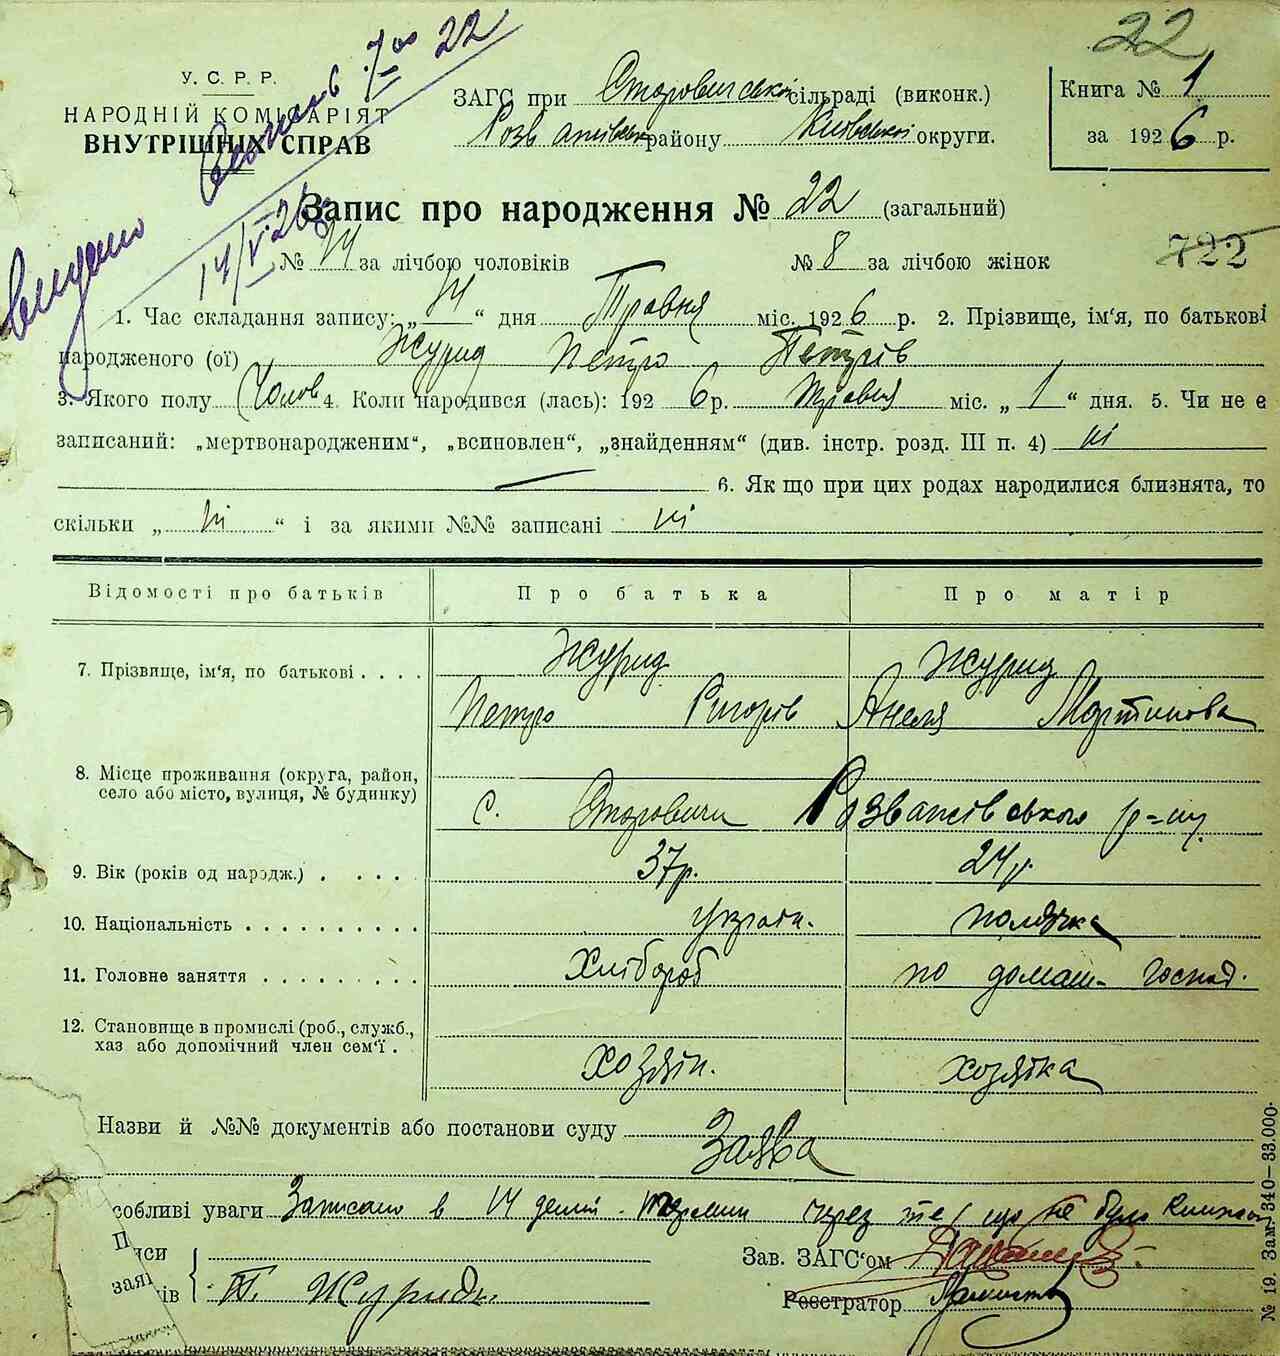 22
У. С. Р. Р.
НАРОДНІЙ КОМІСАРІЯТ
ВНУТРІШНІХ СПРАВ
видано 7 22
14/V-26
ЗАГС при Сторовицької сільраді (виконк.)
Розважівськ району Київської округи.
Книга № 1
за 1926 р.
Запис про народження № 22 (загальний)
№ 14 за лічбою чоловіків № 8 за лічбою жінок
722
1. Час складання запису: „14“ дня Травня міс. 1926 р. 2. Прізвище, ім'я, по батькові
народженого (ої) Журид Петро Петрів
3. Якого полу Чолов 4. Коли народився (лась): 1926 р. травня міс. „1“ дня. 5. Чи не є
записаний: „мертвонародженим“, „всиновлен“, „знайденням“ (див. інстр. розд. III п. 4) ні
— 6. Як що при цих родах народилися близнята, то
скільки „ні“ і за якими №№ записані ні
Відомості про батьків Про батька Про матір
7. Прізвище, ім'я, по батькові . . . . Журид Журид
Петро Ригорів Анеля Мартинова
8. Місце проживання (округа, район,
село або місто, вулиця, № будинку) с. Сторовичи Розважівського р=ну
9. Вік (років од народж.) . . . . 37р. 24р.
10. Національність . . . . . . . . . . україн. полячка
11. Головне заняття . . . . . . . . . Хлібороб по домаш- господ.
12. Становище в промислі (роб., служб.,
хаз або допомічний член сем'ї . хозяін. хозяйка
Назви й №№ документів або постанови суду Заява
собливі уваги Записано в 14 денний термин через те, що не було
П иси
заяв ків П. Журидь
Зав. ЗАГС'ом
Реєстратор
№ 19. Зам. 340—33.000.